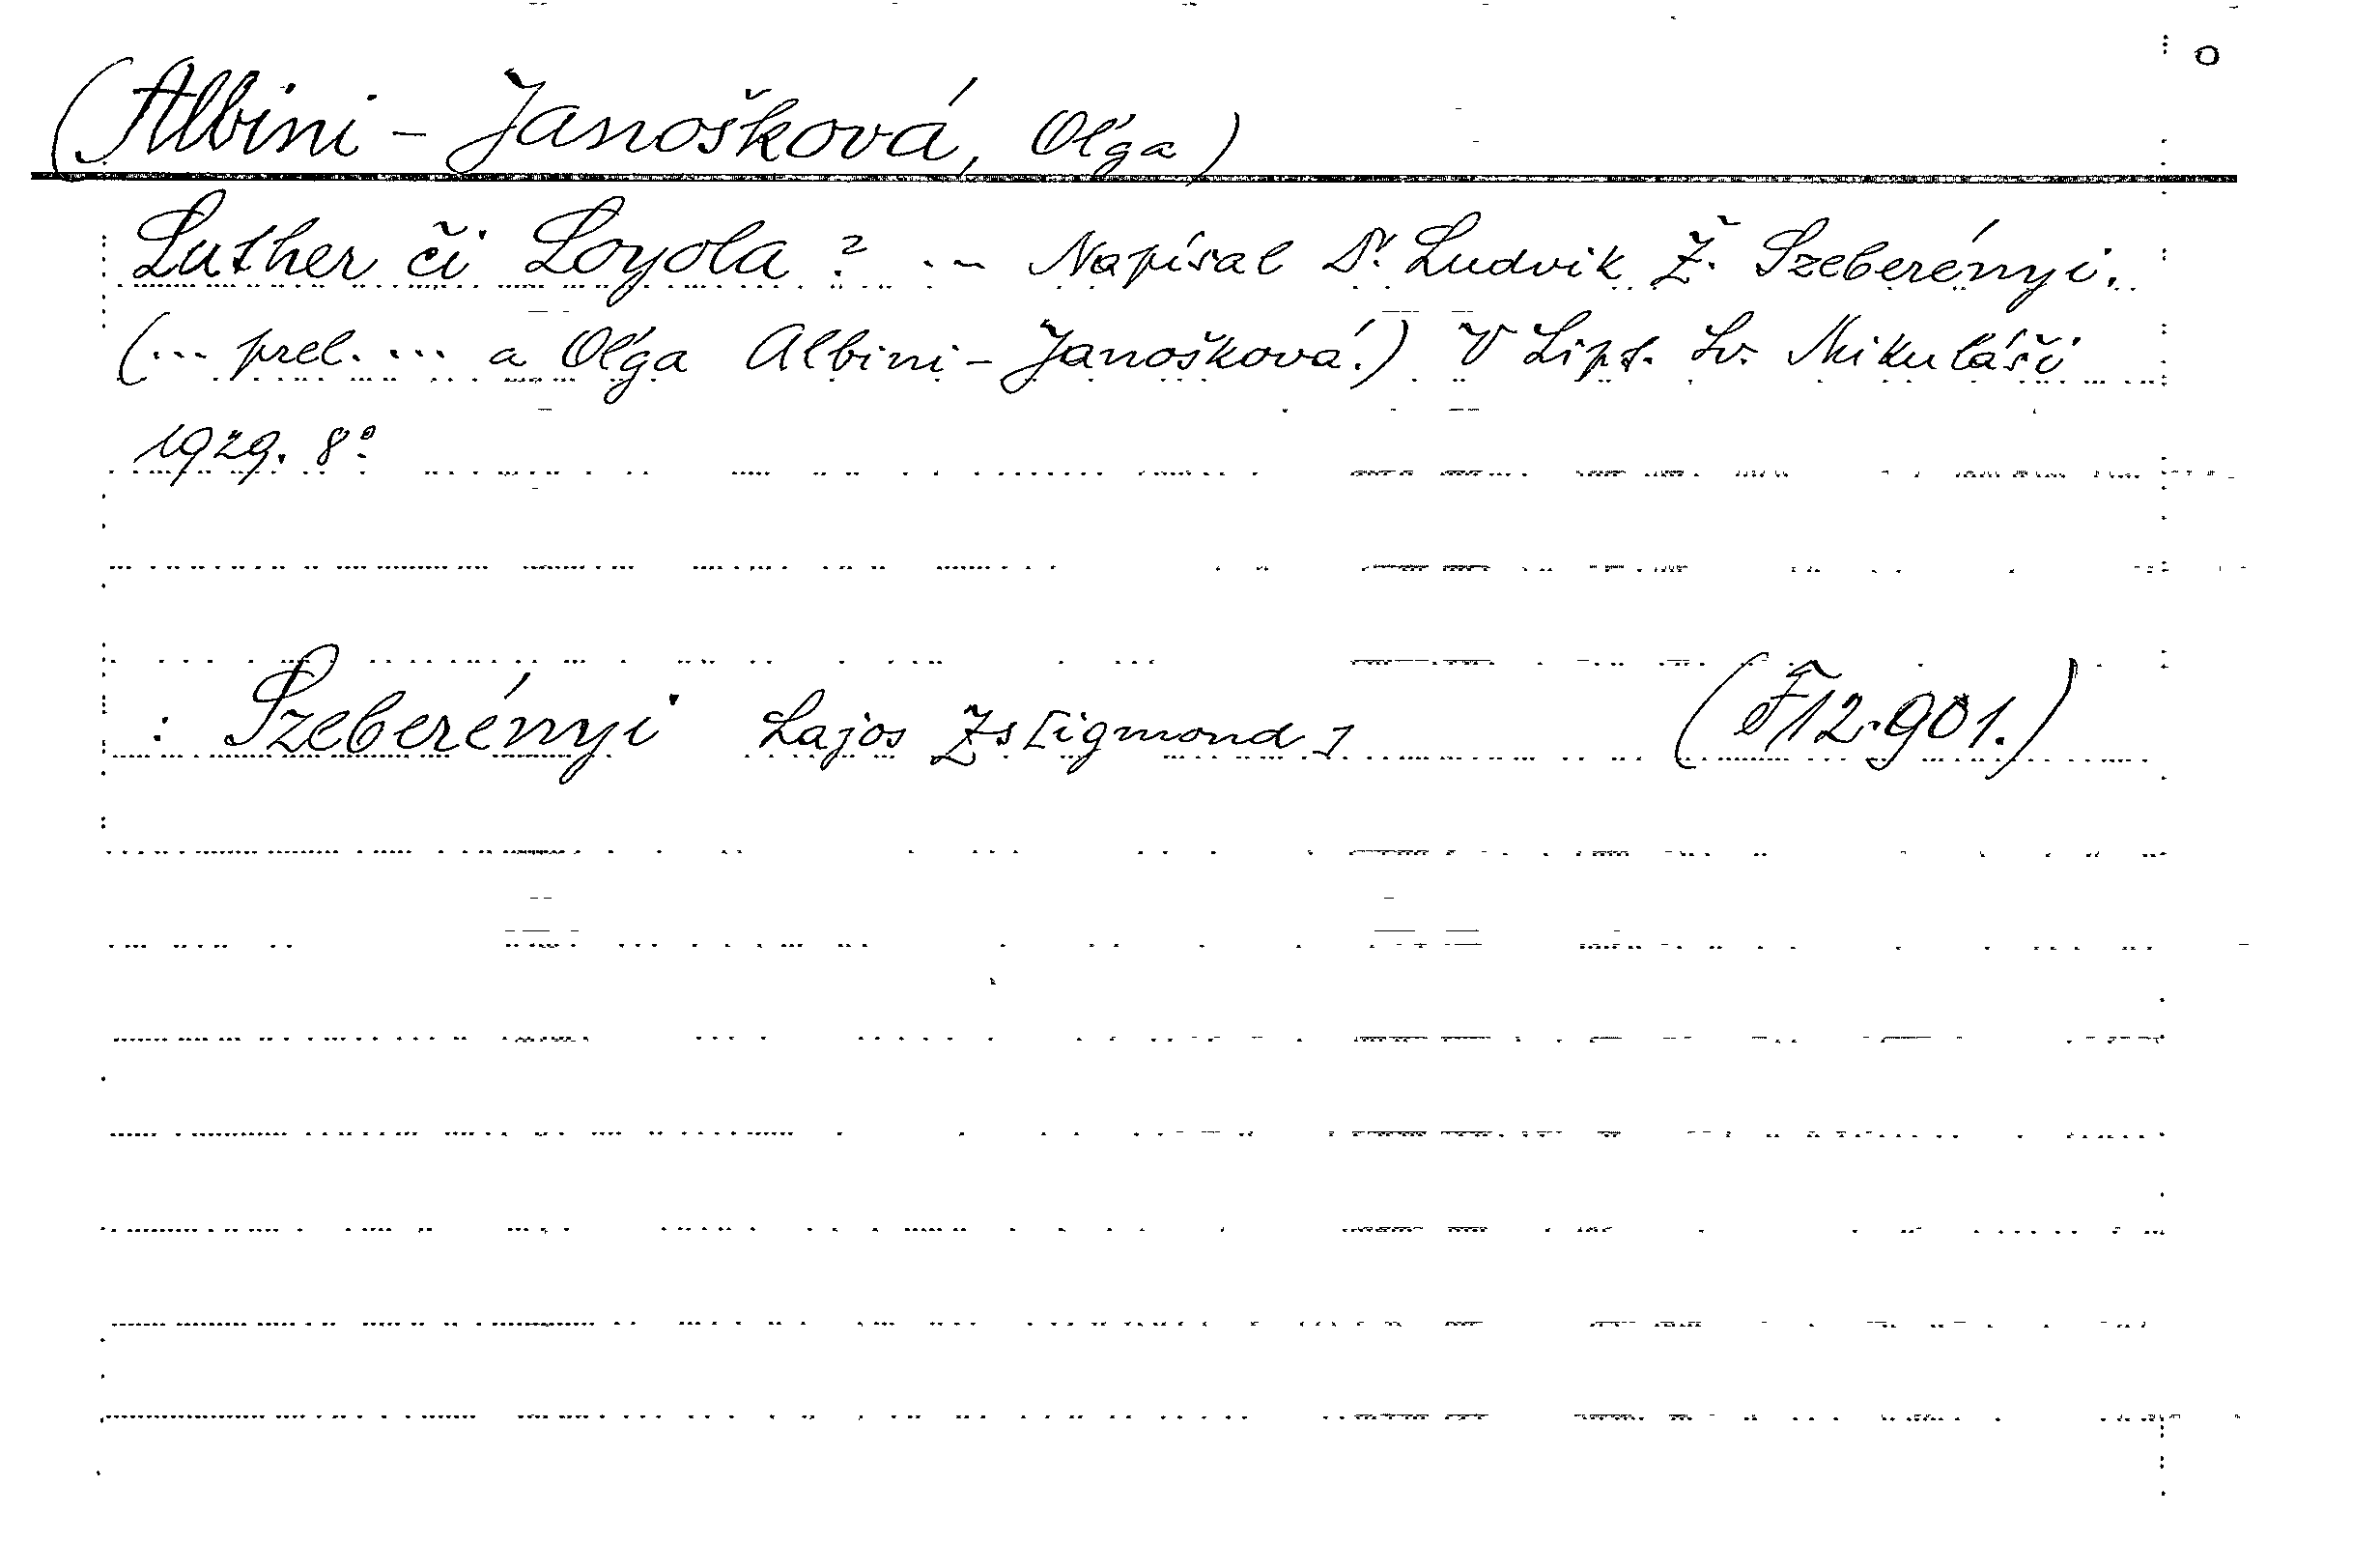 (Albini - Janošková, Oľga)
Luther či Loyola? ... Napísal Dr. Ludvik Ž. Szeberényi.
(... prel. ... a Oľga Albini - Janošková.) V Lipt. Sv. Mikuláši
1929. 8°
: Szeberényi Lajos Zs[igmond] (F 12.901.)